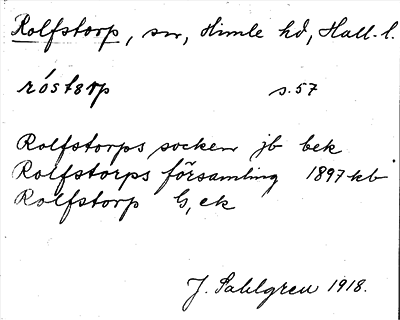 Rolfstorp, sn, Himle hd, Hall. l.
róstərp s. 57
Rolfstorps socken jb bek
Rolfstorps församling 1897 kb
Rolfstorp G, ek
J. Sahlgren 1918.